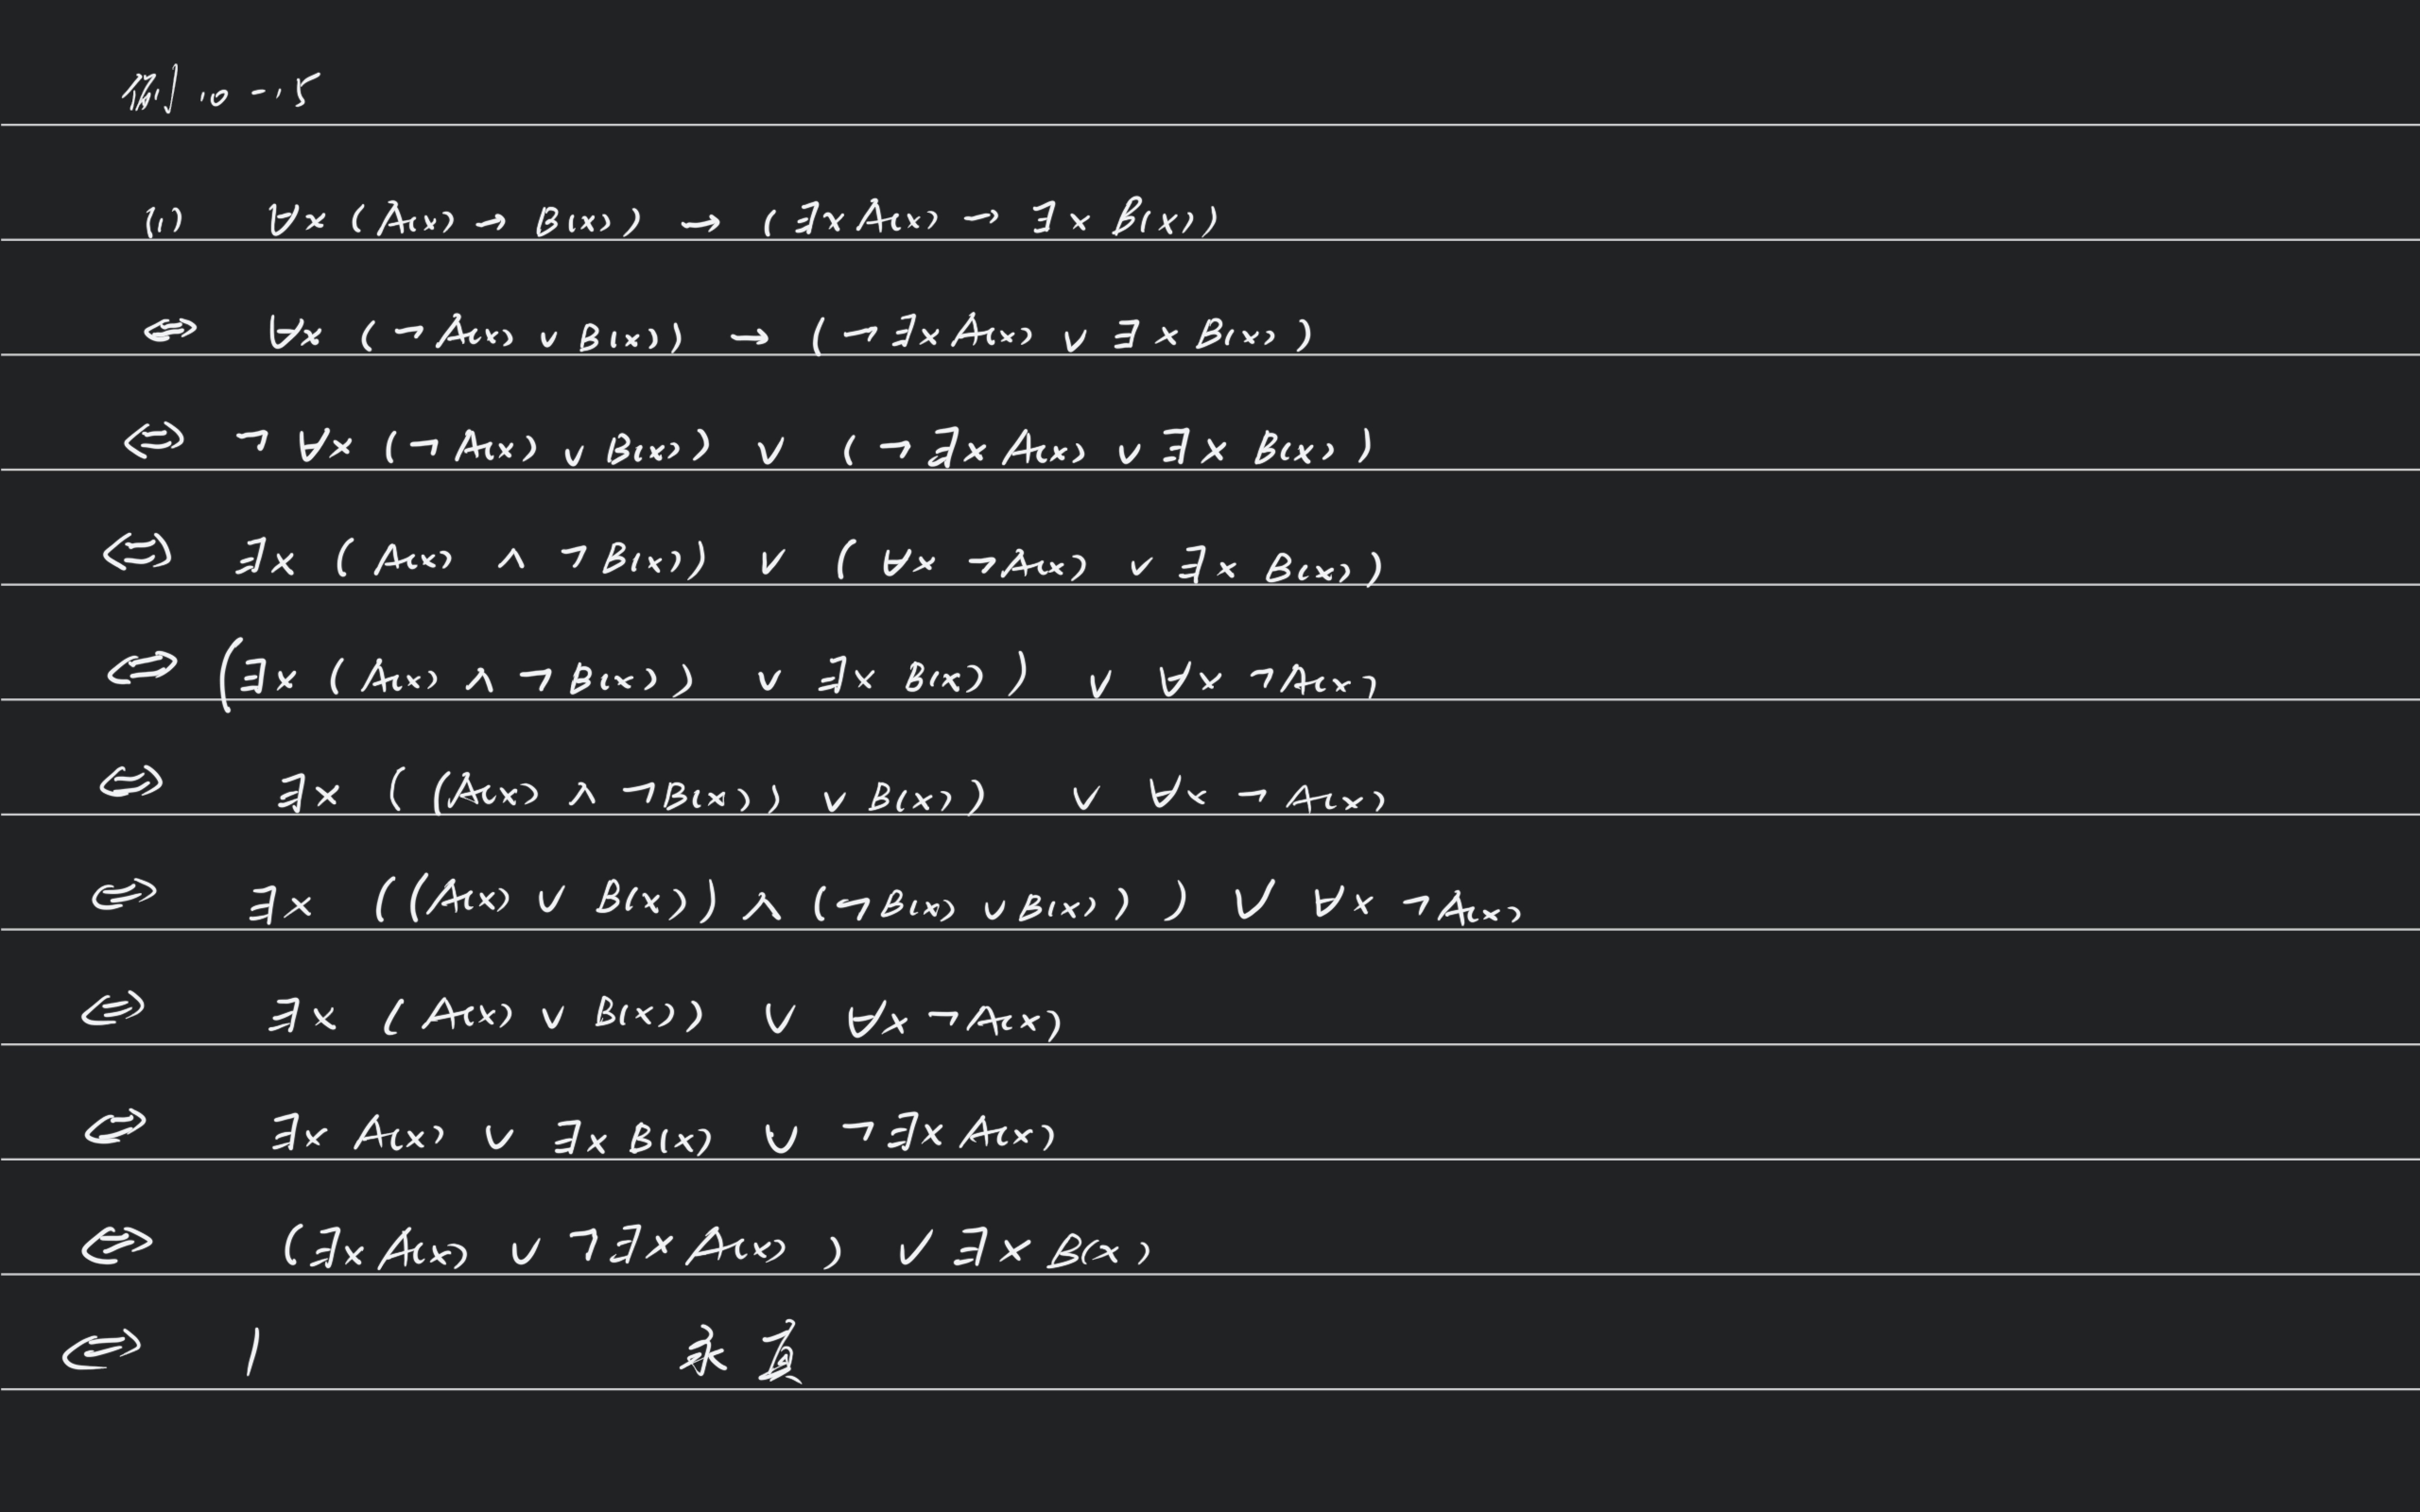 例 10-15
(1) ∀x (A(x) → B(x)) → (∃x A(x) → ∃x B(x))
⇔ ∀x (¬A(x) ∨ B(x)) → (¬∃x A(x) ∨ ∃x B(x))
⇔ ¬∀x (¬A(x) ∨ B(x)) ∨ (¬∃x A(x) ∨ ∃x B(x))
⇔ ∃x (A(x) ∧ ¬B(x)) ∨ (∀x ¬A(x) ∨ ∃x B(x))
⇔ (∃x (A(x) ∧ ¬B(x)) ∨ ∃x B(x)) ∨ ∀x ¬A(x)
⇔ ∃x ((A(x) ∧ ¬B(x)) ∨ B(x)) ∨ ∀x ¬A(x)
⇔ ∃x ((A(x) ∨ B(x)) ∧ (¬B(x) ∨ B(x))) ∨ ∀x ¬A(x)
⇔ ∃x (A(x) ∨ B(x)) ∨ ∀x ¬A(x)
⇔ ∃x A(x) ∨ ∃x B(x) ∨ ¬∃x A(x)
⇔ (∃x A(x) ∨ ¬∃x A(x)) ∨ ∃x B(x)
⇔ 1 永真